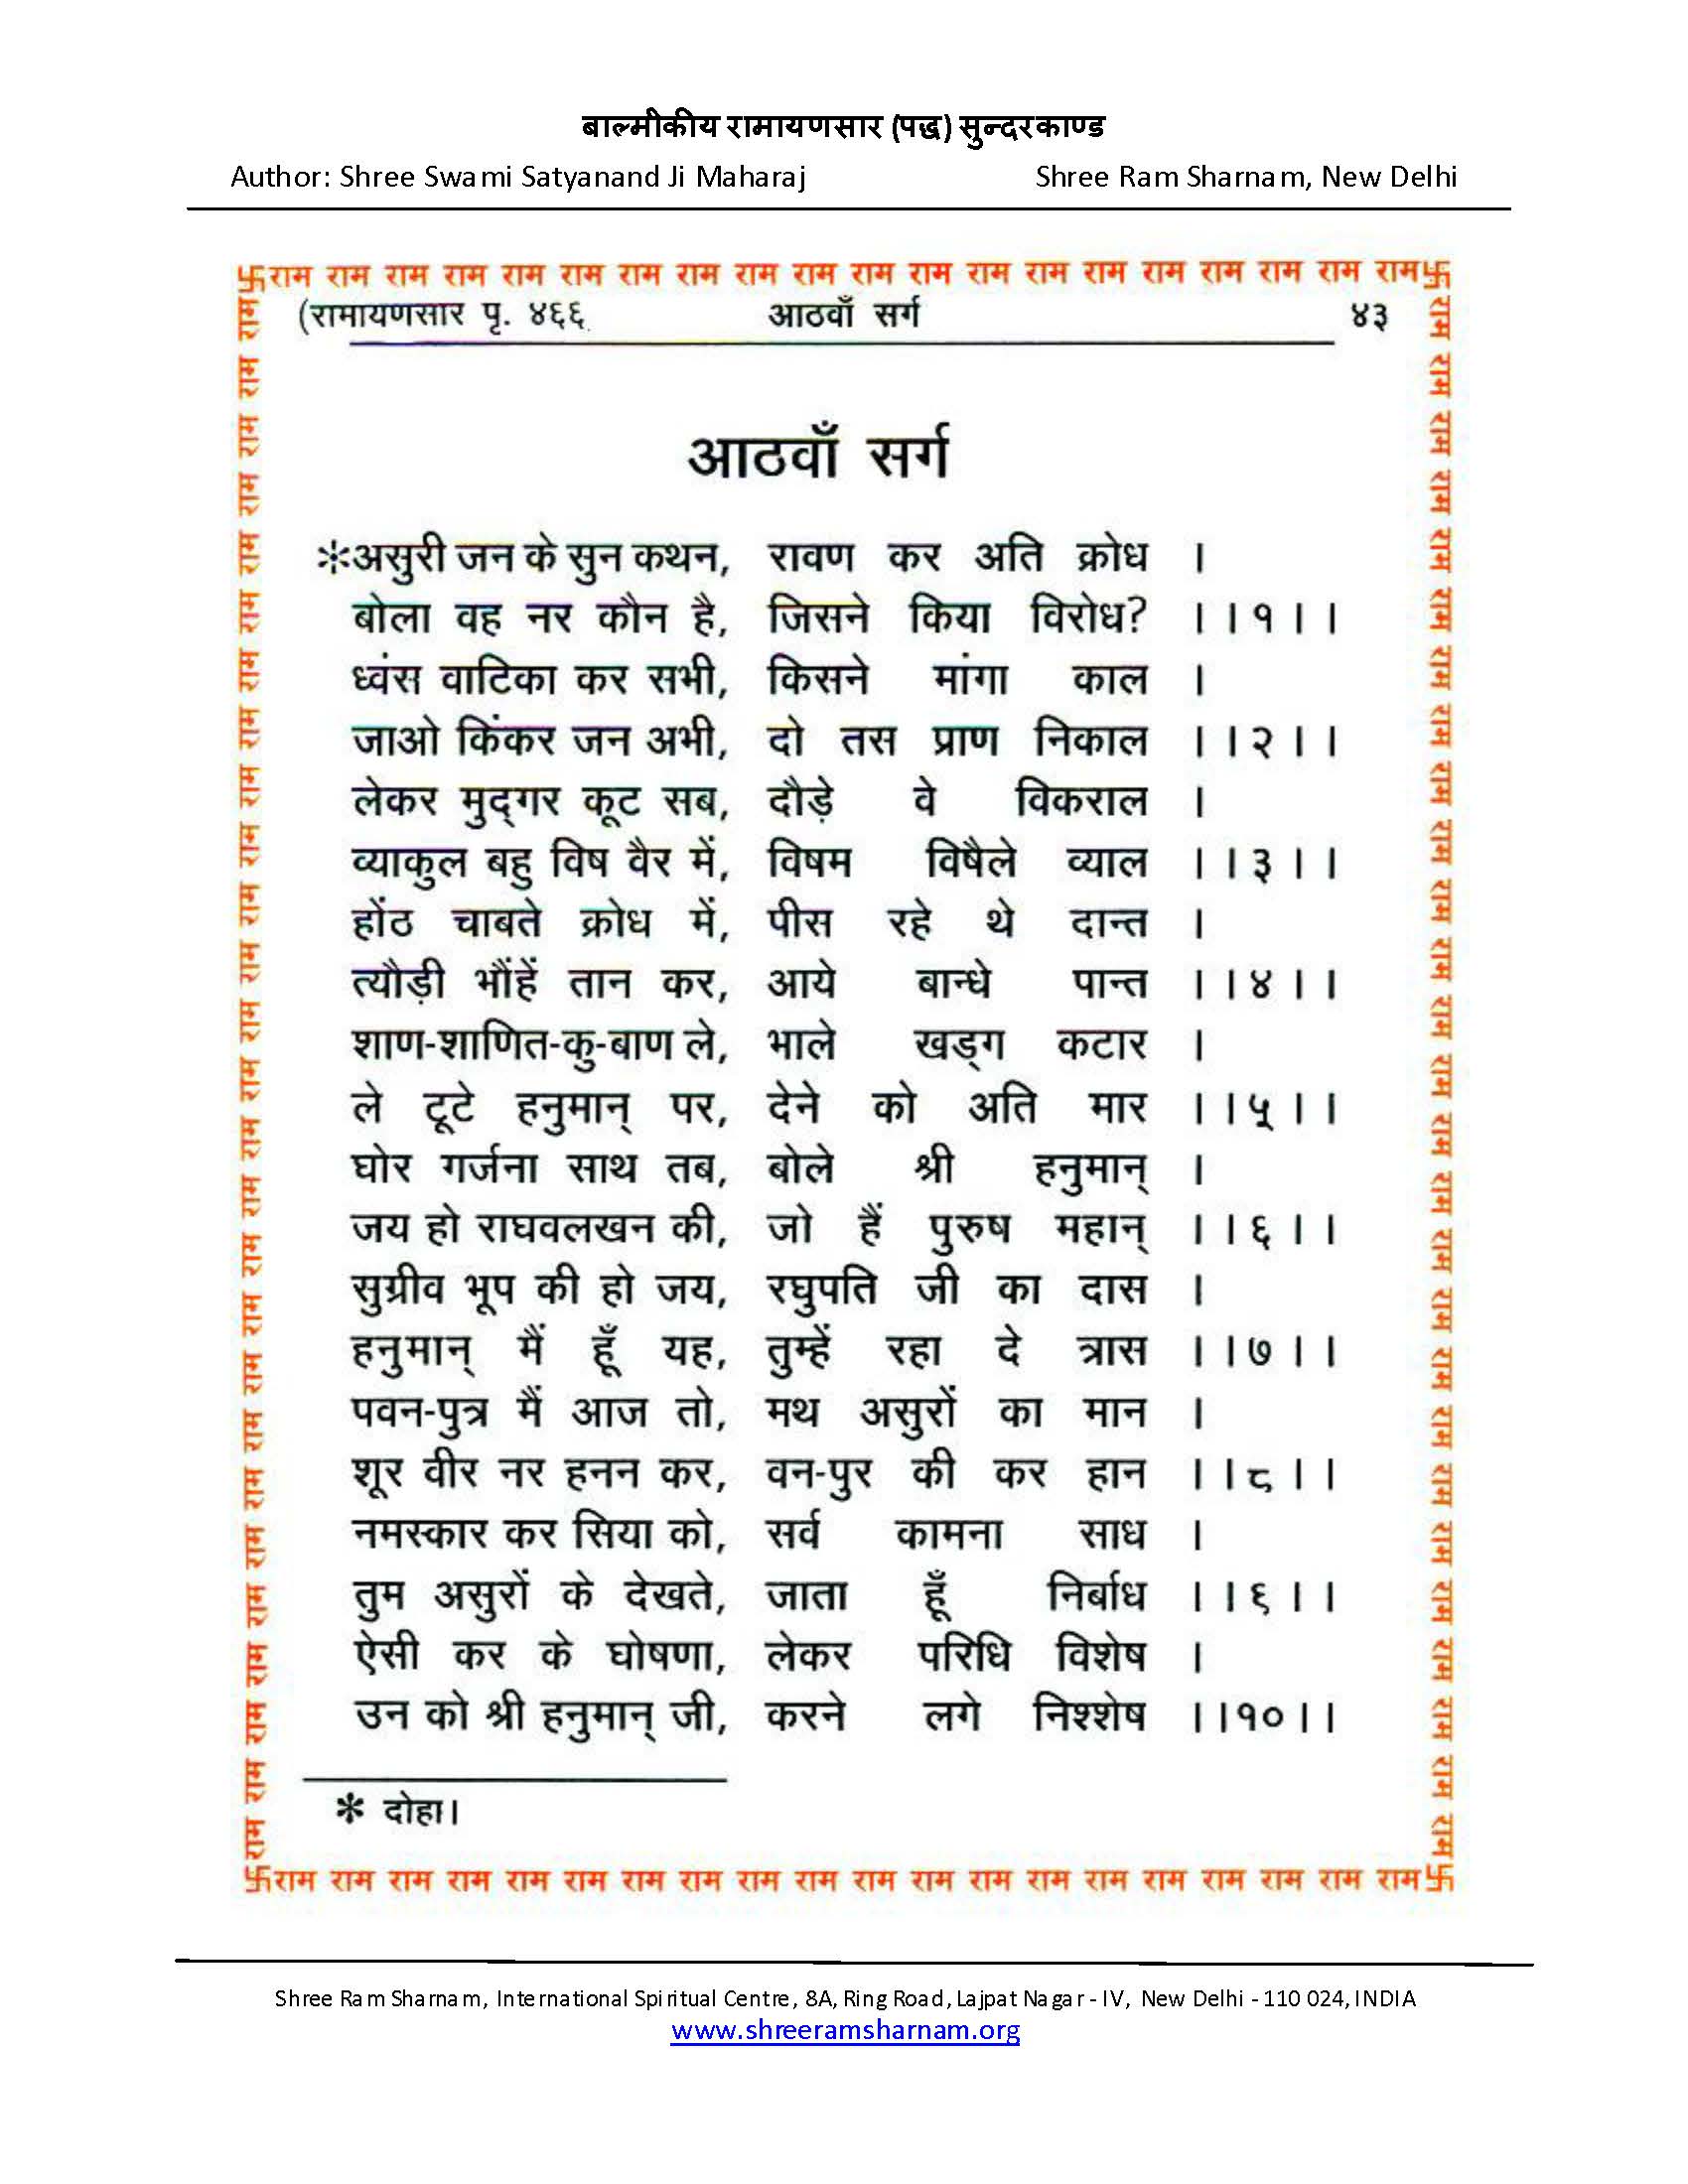 बाल्मीकीय रामायणसार (पद्ध) सुन्दरकाण्ड
Author: Shree Swami Satyanand Ji Maharaj Shree Ram Sharnam, New Delhi
卐राम राम राम राम राम राम राम राम राम राम राम राम राम राम राम राम राम राम राम राम卐
(रामायणसार पृ. ४६६ आठवाँ सर्ग ४३
आठवाँ सर्ग
*असुरी जन के सुन कथन, रावण कर अति क्रोध ।
बोला वह नर कौन है, जिसने किया विरोध? ।।१।।
ध्वंस वाटिका कर सभी, किसने मांगा काल ।
जाओ किंकर जन अभी, दो तस प्राण निकाल ।।२।।
लेकर मुद्गर कूट सब, दौड़े वे विकराल ।
व्याकुल बहु विष वैर में, विषम विषैले व्याल ।।३।।
होंठ चाबते क्रोध में, पीस रहे थे दान्त ।
त्यौड़ी भौंहें तान कर, आये बान्धे पान्त ।।४।।
शाण-शाणित-कु-बाण ले, भाले खड्ग कटार ।
ले टूटे हनुमान् पर, देने को अति मार ।।५।।
घोर गर्जना साथ तब, बोले श्री हनुमान् ।
जय हो राघवलखन की, जो हैं पुरुष महान् ।।६।।
सुग्रीव भूप की हो जय, रघुपति जी का दास ।
हनुमान् मैं हूँ यह, तुम्हें रहा दे त्रास ।।७।।
पवन-पुत्र मैं आज तो, मथ असुरों का मान ।
शूर वीर नर हनन कर, वन-पुर की कर हान ।।८।।
नमस्कार कर सिया को, सर्व कामना साध ।
तुम असुरों के देखते, जाता हूँ निर्बाध ।।९।।
ऐसी कर के घोषणा, लेकर परिधि विशेष ।
उन को श्री हनुमान् जी, करने लगे निश्शेष ।।१०।।
* दोहा।
卐राम राम राम राम राम राम राम राम राम राम राम राम राम राम राम राम राम राम राम राम卐
Shree Ram Sharnam, International Spiritual Centre, 8A, Ring Road, Lajpat Nagar - IV, New Delhi - 110 024, INDIA
www.shreeramsharnam.org